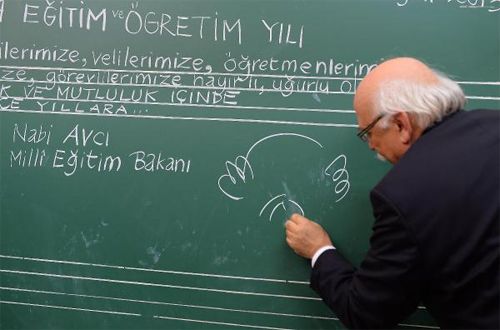 EĞİTİM ve ÖĞRETİM YILI
ilerimize, velilerimize, öğretmenlerimi
ze, görevlilerimize hayırlı, uğurlu ol
K VE MUTLULUK İÇİNDE
CE YILLARA...
Nabi AVCI
Milli Eğitim Bakanı